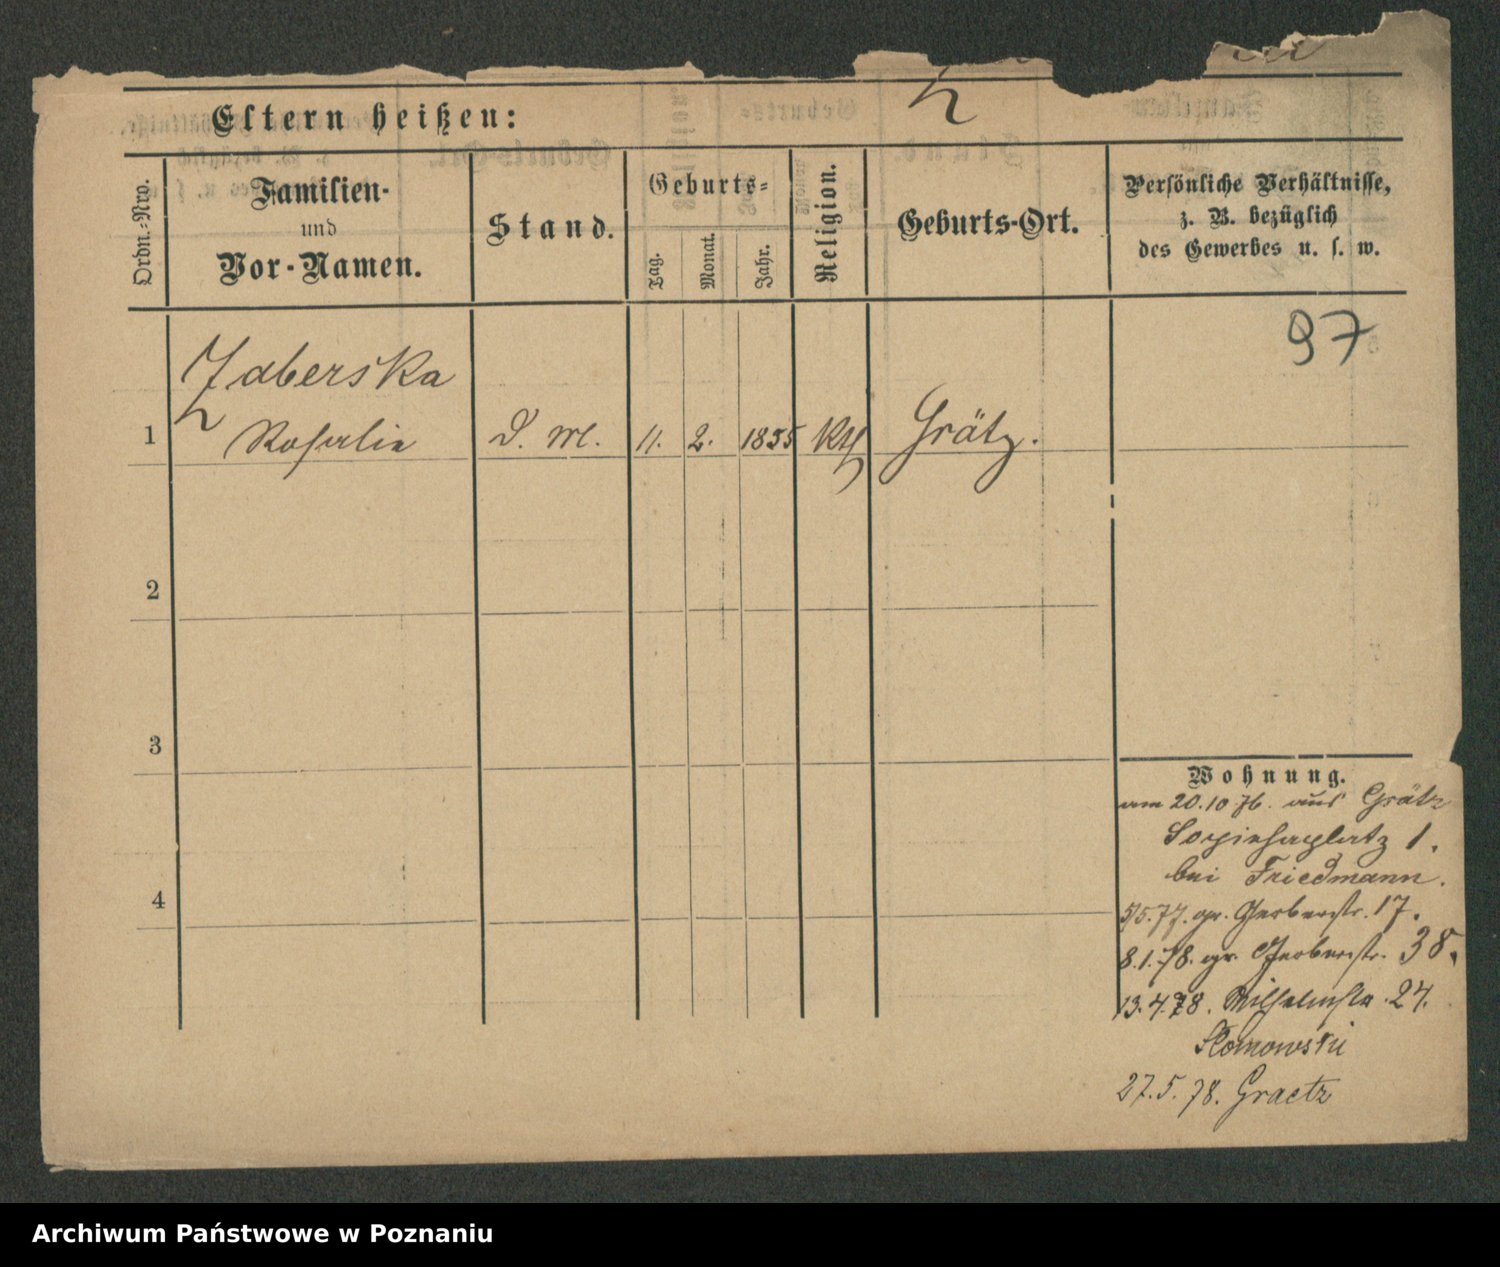 Eltern heißen:
Ordn.-Nro.
Familien-
und
Vor-Namen.
Stand.
Geburts-
Tag.
Monat.
Jahr.
Religion.
Geburts-Ort.
Persönliche Verhältnisse,
z. B. bezüglich
des Gewerbes u. s. w.
97
Zaberska
1 Rosalie D. M. 11. 2. 1855 Kth Grätz.
2
3
4
Wohnung.
am 20.10.76. aus Grätz
Sapiehaplatz 1.
bei Friedmann.
5/5.77. gr. Gerberstr. 17.
8.1.78. gr. Gerberstr. 38.
13.4.78. Wilhelmstr. 24.
27.5.78. Graetz
Archiwum Państwowe w Poznaniu